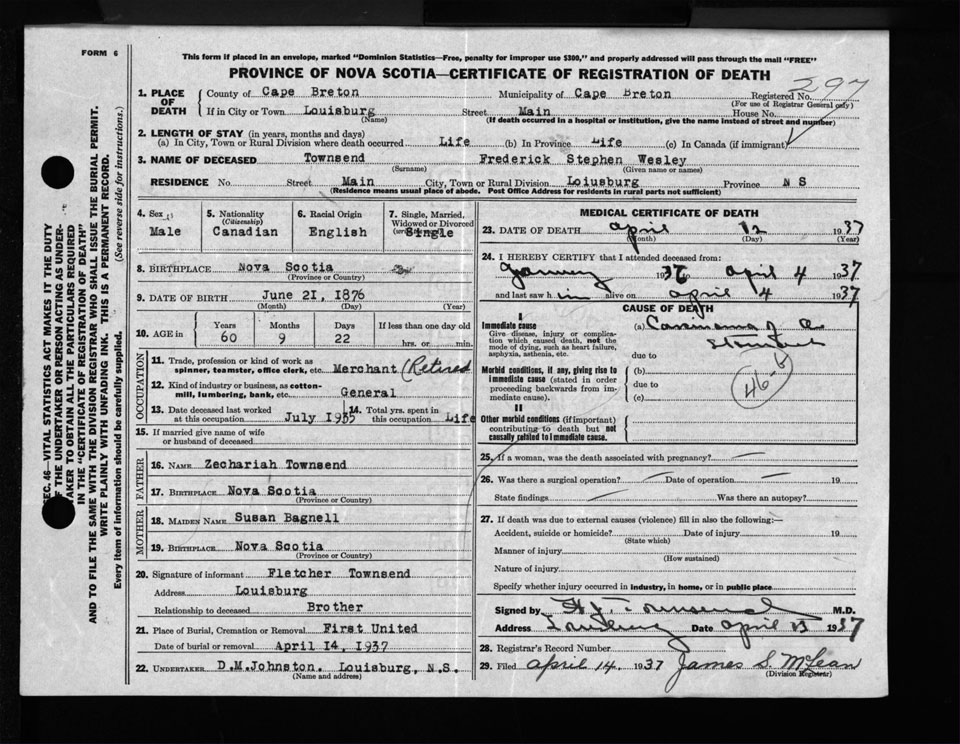 FORM 6
This form if placed in an envelope, marked "Dominion Statistics—Free, penalty for improper use $300," and properly addressed will pass through the mail "FREE"
PROVINCE OF NOVA SCOTIA—CERTIFICATE OF REGISTRATION OF DEATH
297
1. PLACE OF DEATH
County of Cape Breton Municipality of Cape Breton Registered No.
(For use of Registrar General only)
If in City or Town Louisburg Street Main House No.
(Name) (If death occurred in a hospital or institution, give the name instead of street and number)
2. LENGTH OF STAY (in years, months and days)
(a) In City, Town or Rural Division where death occurred Life (b) In Province Life (c) In Canada (if immigrant)
3. NAME OF DECEASED Townsend Frederick Stephen Wesley
(Surname) (Given name or names)
RESIDENCE No. Street Main City, Town or Rural Division Loiusburg Province N S
(Residence means usual place of abode. Post Office Address for residents in rural parts not sufficient)
4. Sex Male
5. Nationality (Citizenship) Canadian
6. Racial Origin English
7. Single, Married, Widowed or Divorced Single
8. BIRTHPLACE Nova Scotia
(Province or Country)
9. DATE OF BIRTH June 21, 1876
(Month) (Day) (Year)
10. AGE in Years Months Days If less than one day old
60 9 22 hrs. or min.
OCCUPATION
11. Trade, profession or kind of work as spinner, teamster, office clerk, etc. Merchant (Retired
12. Kind of industry or business, as cotton-mill, lumbering, bank, etc. General
13. Date deceased last worked at this occupation July 1935 14. Total yrs. spent in this occupation Life
15. If married give name of wife or husband of deceased
FATHER
16. NAME Zechariah Townsend
17. BIRTHPLACE Nova Scotia
(Province or Country)
MOTHER
18. MAIDEN NAME Susan Bagnell
19. BIRTHPLACE Nova Scotia
(Province or Country)
20. Signature of informant Fletcher Townsend
Address Louisburg
Relationship to deceased Brother
21. Place of Burial, Cremation or Removal First United
Date of burial or removal April 14, 1937
22. UNDERTAKER D.M.Johnston. Louisburg, N.S.
(Name and address)
MEDICAL CERTIFICATE OF DEATH
23. DATE OF DEATH April 12 1937
(Month) (Day) (Year)
24. I HEREBY CERTIFY that I attended deceased from:
January 1937 to April 4 1937
and last saw him alive on April 4 1937
CAUSE OF DEATH
I
Immediate cause
Give disease, injury or complication which caused death, not the mode of dying, such as heart failure, asphyxia, asthenia, etc.
(a) Carcinoma of
Stomach
due to
Morbid conditions, if any, giving rise to immediate cause (stated in order proceeding backwards from immediate cause).
(b)
due to
(c)
46-b
II
Other morbid conditions (if important) contributing to death but not causally related to immediate cause.
25. If a woman, was the death associated with pregnancy?
26. Was there a surgical operation? Date of operation 19
State findings Was there an autopsy?
27. If death was due to external causes (violence) fill in also the following:—
Accident, suicide or homicide? Date of injury 19
(State which)
Manner of injury
(How sustained)
Nature of injury
Specify whether injury occurred in industry, in home, or in public place
Signed by Townsend M.D.
Address Louisburg Date April 13 1937
28. Registrar's Record Number
29. Filed April 14. 1937 James S. McLean
(Division Registrar)
SEC. 46—VITAL STATISTICS ACT MAKES IT THE DUTY
OF THE UNDERTAKER OR PERSON ACTING AS UNDER-
TAKER TO OBTAIN ALL THE PARTICULARS REQUIRED
IN THE "CERTIFICATE OF REGISTRATION OF DEATH"
AND TO FILE THE SAME WITH THE DIVISION REGISTRAR WHO SHALL ISSUE THE BURIAL PERMIT.
WRITE PLAINLY WITH UNFADING INK. THIS IS A PERMANENT RECORD.
Every item of information should be carefully supplied. (See reverse side for instructions.)